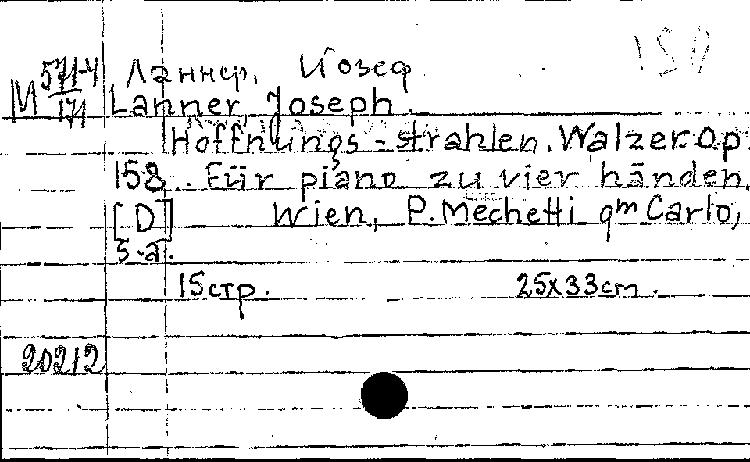 М 571-4/171 Ланнер, Йозеф
Lanner, Joseph.
Hoffnungs-strahlen. Walzer. op.
158. Für piano zu vier händen.
[D] Wien, P. Mechetti qm Carlo,
s.a.
15 стр. 25x33 cm.
20212